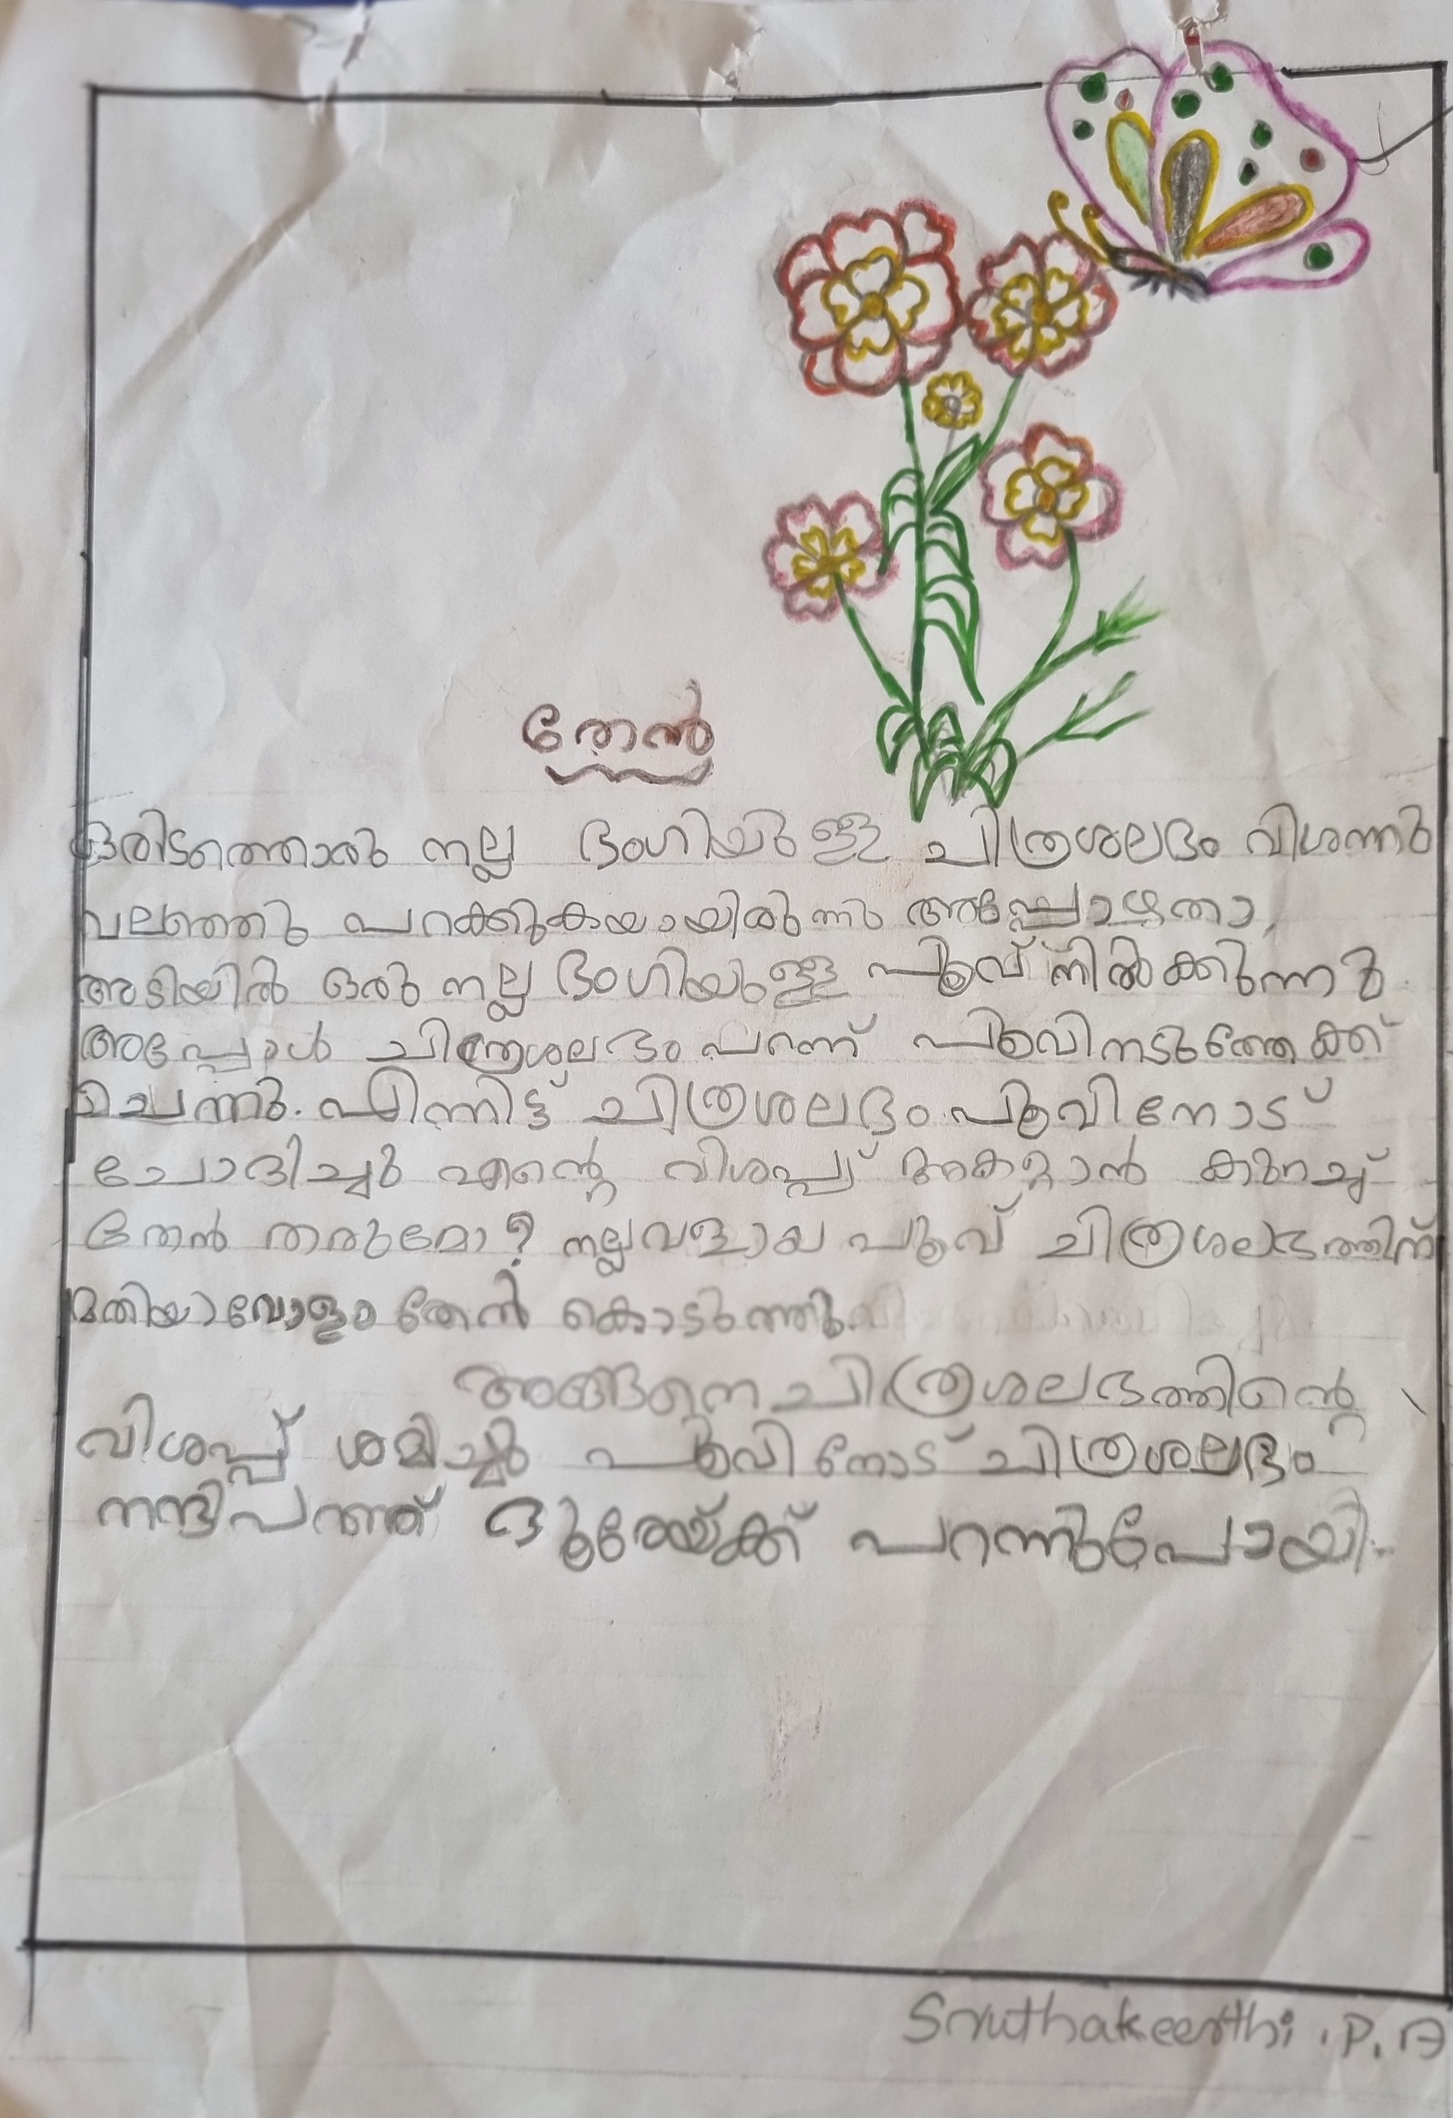 തേൻ
ഒരിടത്തൊരു നല്ല ഭംഗിയുള്ള ചിത്രശലഭം വിശന്നു
വലഞ്ഞു പറക്കുകയായിരുന്നു അപ്പോഴതാ,
അടിയിൽ ഒരു നല്ല ഭംഗിയുള്ള പൂവ് നിൽക്കുന്നു
അപ്പോൾ ചിത്രശലഭം പറന്ന് പൂവിനടുത്തേക്ക്
ചെന്നു. എന്നിട്ട് ചിത്രശലഭം പൂവിനോട്
ചോദിച്ചു എന്റെ വിശപ്പ് അകറ്റാൻ കുറച്ച്
തേൻ തരുമോ? നല്ലവളായ പൂവ് ചിത്രശലഭത്തിന്
മതിയാവോളം തേൻ കൊടുത്തു.
അങ്ങനെ ചിത്രശലഭത്തിന്റെ
വിശപ്പ് ശമിച്ചു പൂവിനോട് ചിത്രശലഭം
നന്ദിപറഞ്ഞ് ദൂരേയ്ക്ക് പറന്നുപോയി.
Sruthakeerthi . P. A